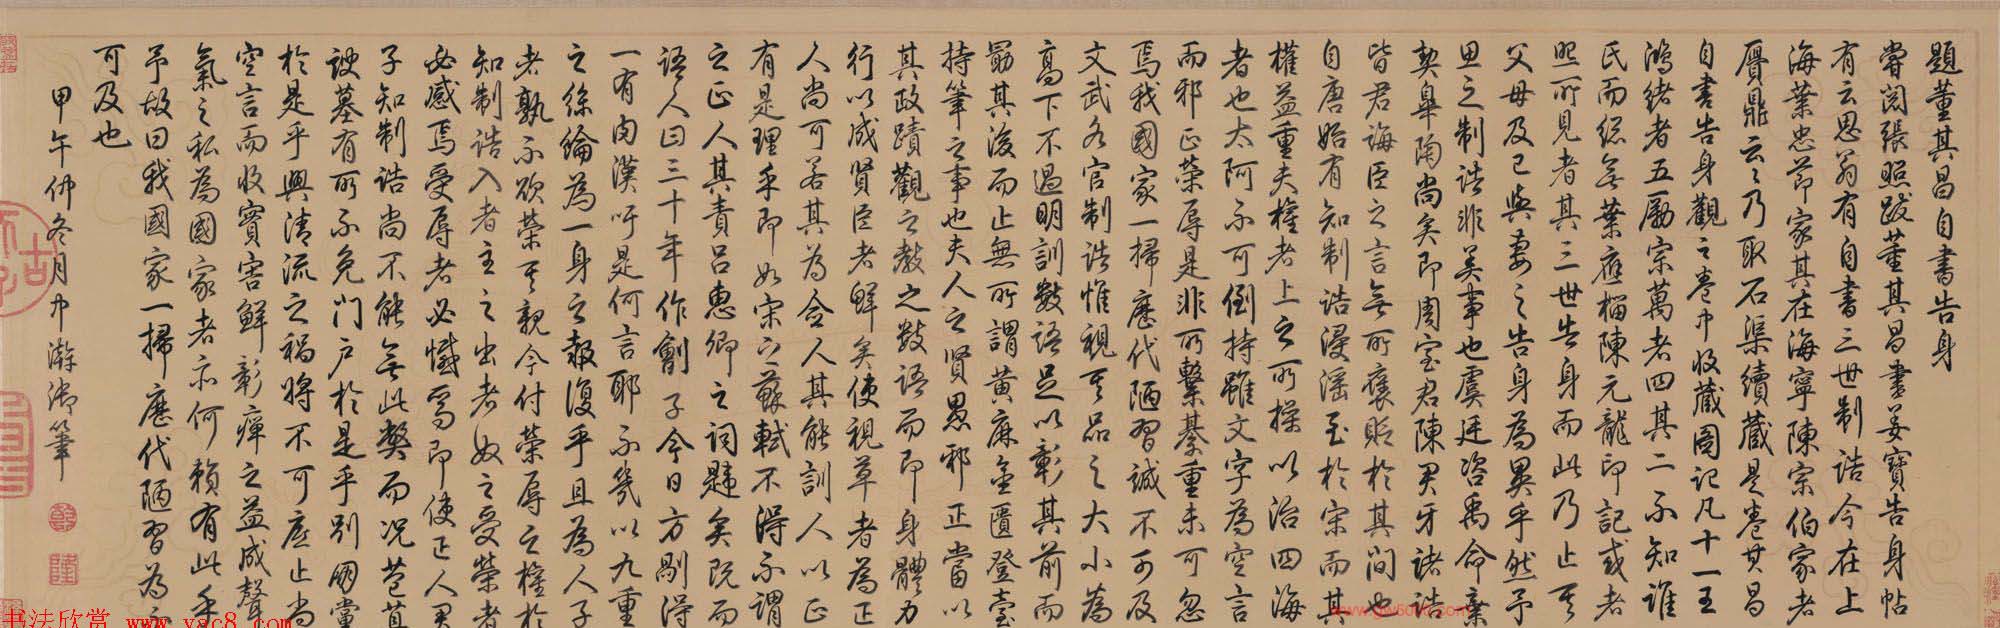 題董其昌自書告身
嘗閱張照跋董其昌書姜寶告身帖
有云思翁有自書三世制誥今在上
海葉忠節家其在海寧陳宗伯家者
贋鼎云云乃取石渠續藏是卷其昌
自書告身觀之卷中收藏圖記凡十一王
鴻緒者五勵宗萬者四其二不知誰
氏而總無葉應榴陳元龍印記或者
照所見者其三世告身而此乃止其
父母及已與妻之告身為異乎然予
思之制誥非美事也虞廷咨禹命棄
契皐陶尚矣即周室君陳君牙諸誥
皆君誨臣之言無所褒貶於其間也
自唐始有知制誥浸滛至於宋而其
權益重夫權者上之所操以治四海
者也太阿不可倒持雖文字為空言
而邪正榮辱是非所繫綦重未可忽
焉我國家一掃歷代陋習誠不可及
文武各官制誥惟視其品之大小為
高下不過明訓數語足以彰其前而
勗其後而止無所謂黃麻金匱登臺
持筆之事也夫人之賢愚邪正當以
其政蹟觀之教之數語而即身體力
行以成賢臣者鮮矣使視草者為正
人尚可若其為僉人其能訓人以正
有是理乎即如宋之蘇軾不得不謂
之正人其責呂惠卿之詞韙矣既而
語人曰三十年作劊子今日方剮得
一有肉漢吁是何言耶不幾以九重
之絲綸為一身之報復乎且為人子
者孰不欲榮其親今付榮辱之權於
知制誥入者主之出者奴之受榮者
必感焉受辱者必憾焉即使正人君
子知制誥尚不能無此弊而况苞苴
諛墓有所不免門户於是乎别朋黨
於是乎興清流之禍將不可底止尚
空言而收實害鮮彰癉之益成聲
氣之私為國家者亦何賴有此乎
予故曰我國家一掃歷代陋習為不
可及也
甲午仲冬月中澣御筆
乾
隆
書法欣赏 www.yac8.com